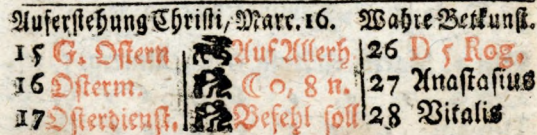 Auferstehung Christi, Marc. 16. Wahre Betkunst.
15 G. Ostern Auf Allerh 26 D 5 Rog.
16 Osterm. ☾ 0, 8 n. 27 Anastasius
17 Osterdienst. Befehl soll 28 Vitalis